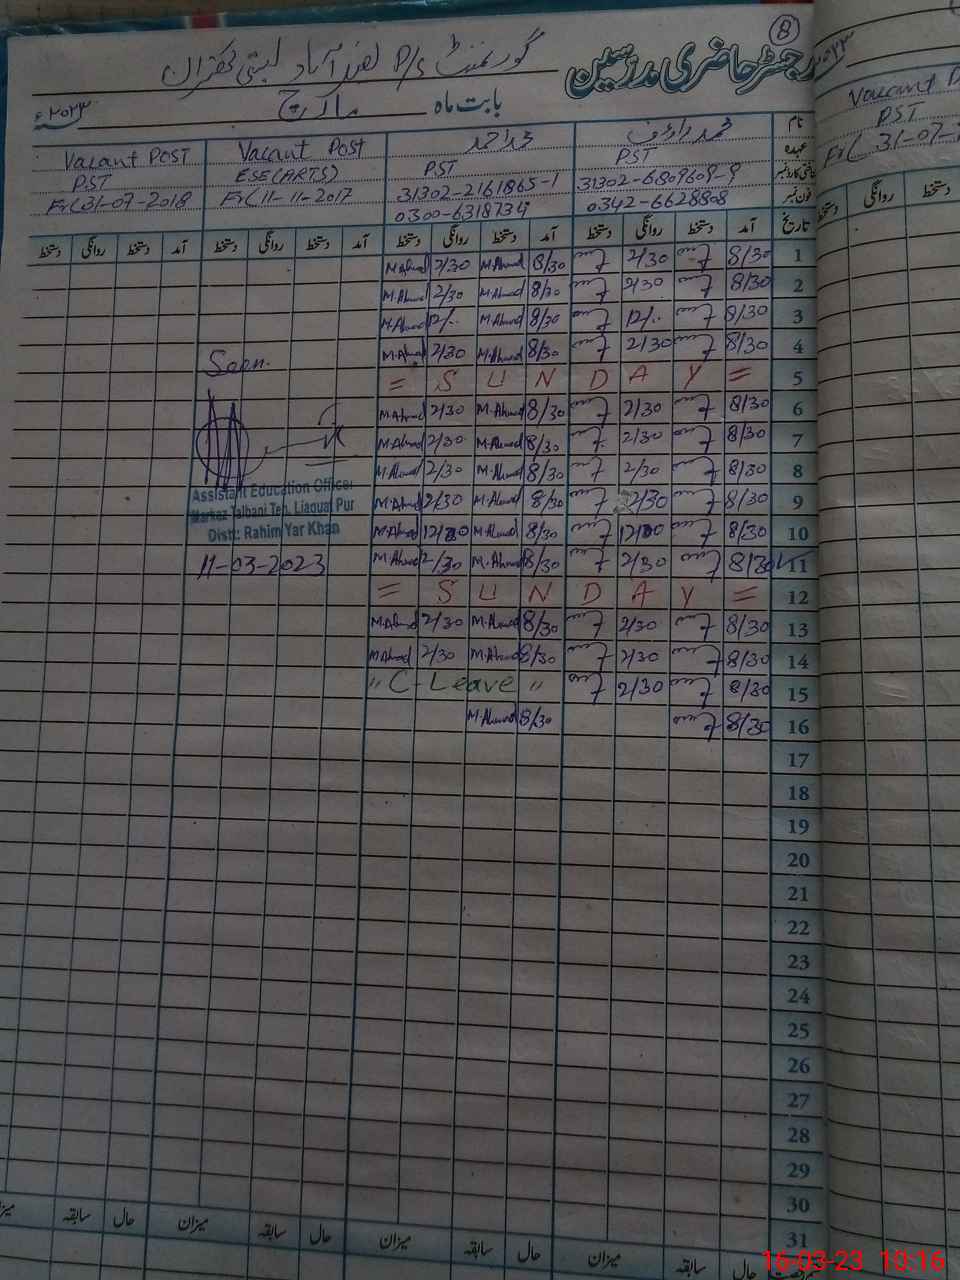 8
رجسٹر حاضری مدرسین
گورنمنٹ P/S
بابت ماہ مارچ ۲۰۲۳ء
نام محمد Vacant Post Vacant POST
عہدہ PST PST ESE(ARTS) PST
31302-6809609-9 31302-2161865-1 Fr(11-11-2017 Fr(31-07-2018
فون نمبر 0342-6628808 0300-6318734
تاریخ آمد دستخط روانگی دستخط آمد دستخط روانگی دستخط آمد دستخط روانگی دستخط آمد دستخط روانگی دستخط
1 8/30 2/30 8/30 M.Ahmad 2/30 M.Ahmad
2 8/30 2/30 8/30 M.Ahmad 2/30 M.Ahmad
3 8/30 12/.. 8/30 M.Ahmad 12/.. M.Ahmad
4 8/30 2/30 8/30 M.Ahmad 2/30 M.Ahmad
5 = S U N D A Y =
6 8/30 2/30 8/30 M.Ahmad 2/30 M.Ahmad
7 8/30 2/30 8/30 M.Ahmad 2/30 M.Ahmad
8 8/30 2/30 8/30 M.Ahmad 2/30 M.Ahmad
9 8/30 2/30 8/30 M.Ahmad 2/30 M.Ahmad
10 8/30 12/00 8/30 M.Ahmad 12/00 M.Ahmad
11 8/30 2/30 8/30 M.Ahmad 2/30 M.Ahmad
12 = S U N D A Y =
13 8/30 2/30 8/30 M.Ahmad 2/30 M.Ahmad
14 8/30 2/30 8/30 M.Ahmad 2/30 M.Ahmad
15 8/30 2/30 " C-Leave "
16 8/30 8/30 M.Ahmad
17
18
19
20
21
22
23
24
25
26
27
28
29
30
31
Seen.
Assistant Education Officer
Markaz Talbani Teh. Liaquat Pur
Distt: Rahim Yar Khan
11-03-2023
سابقہ میزان حال سابقہ میزان حال سابقہ میزان حال سابقہ
Vacant
PST
Fr(31-07-
دستخط روانگی دستخط
16-03-23 10:16